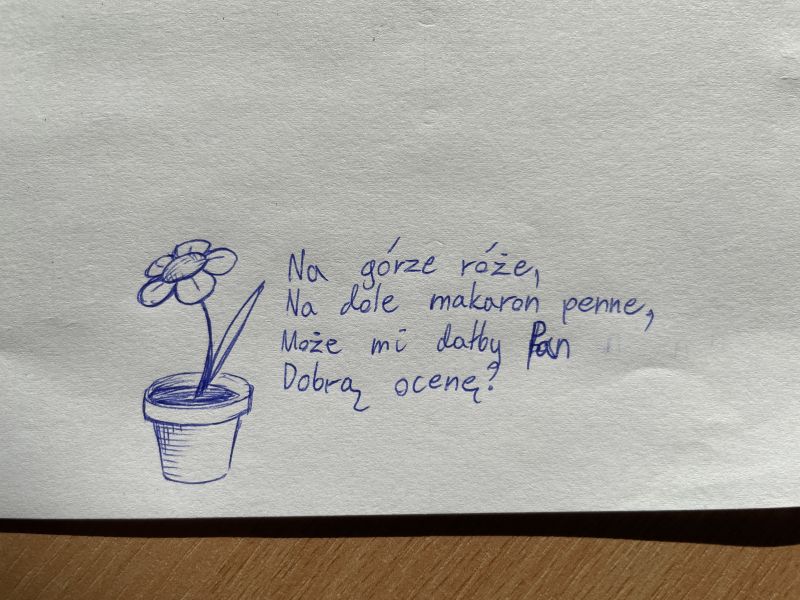 Na górze róże,
Na dole makaron penne,
Może mi dałby Pan
Dobrą ocenę?